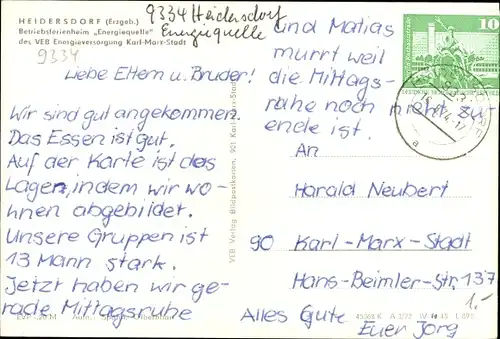 HEIDERSDORF (Erzgeb.)
Betriebsferienheim „Energiequelle"
des VEB Energieversorgung Karl-Marx-Stadt
9334 Heidersdorf
Energiequelle
9334
Liebe Eltern u. Bruder!
Wir sind gut angekommen.
Das Essen ist gut.
Auf der Karte ist das
Lager, indem wir wo-
hnen abgebildet.
Unsere Gruppen ist
13 Mann stark.
Jetzt haben wir ge-
rade Mittagsruhe
und Matias
murrt weil
die Mittags-
ruhe noch nicht zu
ende ist.
10
An
Harald Neubert
90 Karl-Marx-Stadt
Hans-Beimler-Str. 137
1.-
Alles Gute
Euer Jörg
VEB Verlag Bildpostkarten, 901 Karl-Marx-Stadt
a